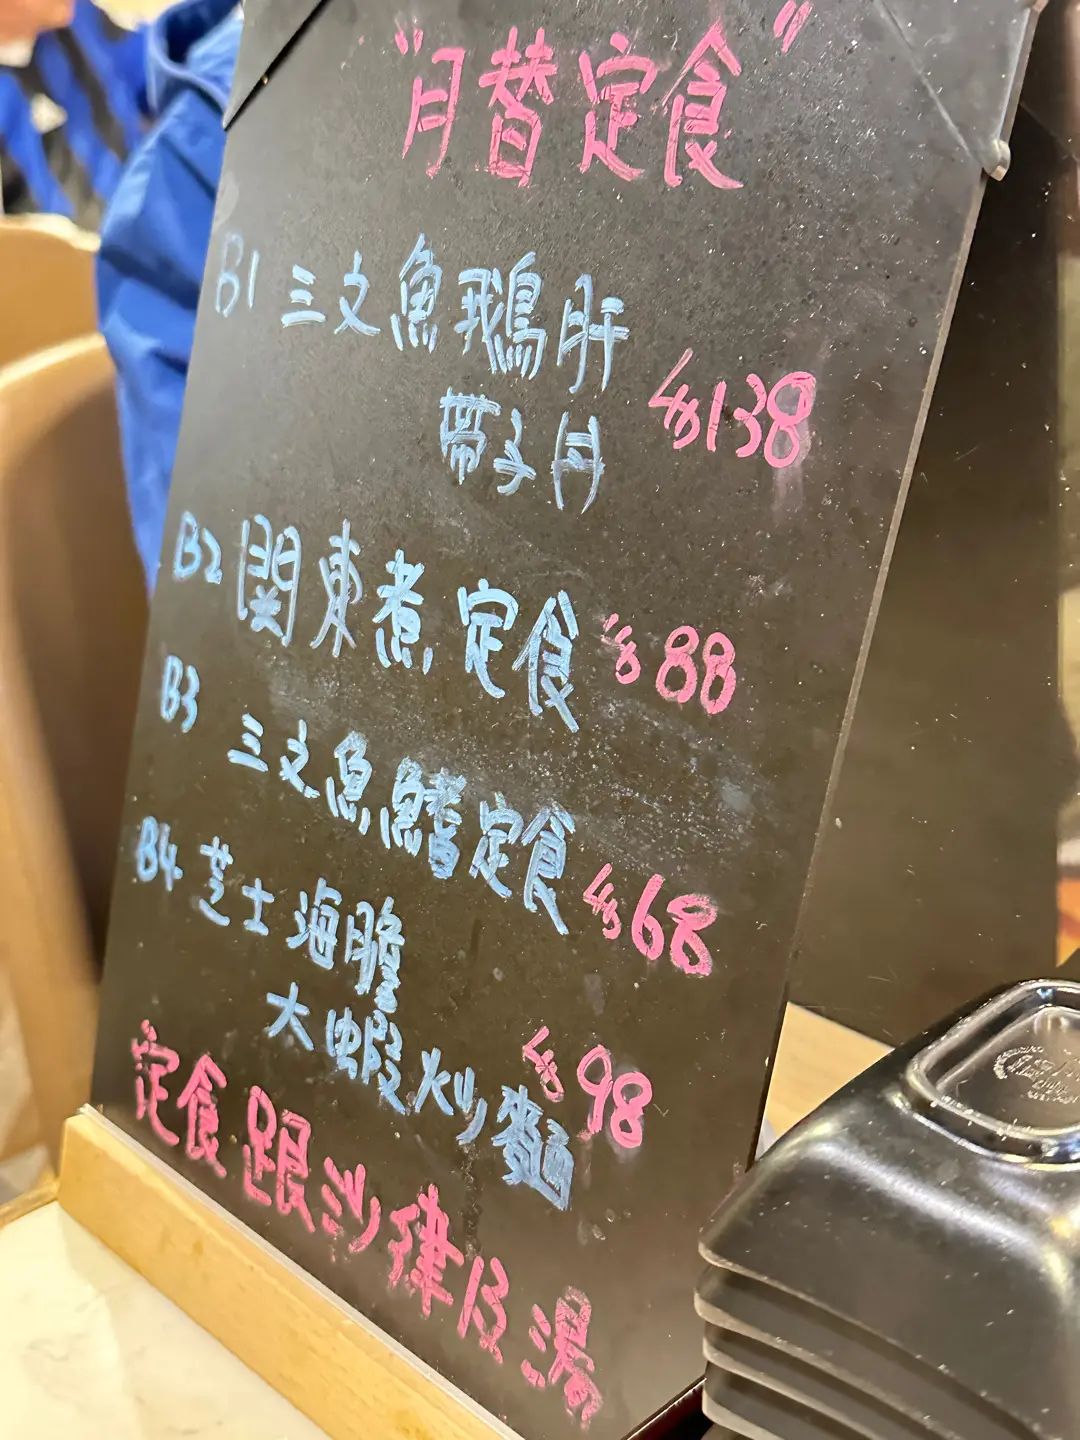 "月替定食"
B1 三文魚鵝肝
帶子丼 $138
B2 関東煮定食 $88
B3 三文魚鰭定食 $68
B4 芝士海膽
大蝦炒麵 $98
定食跟沙律及湯